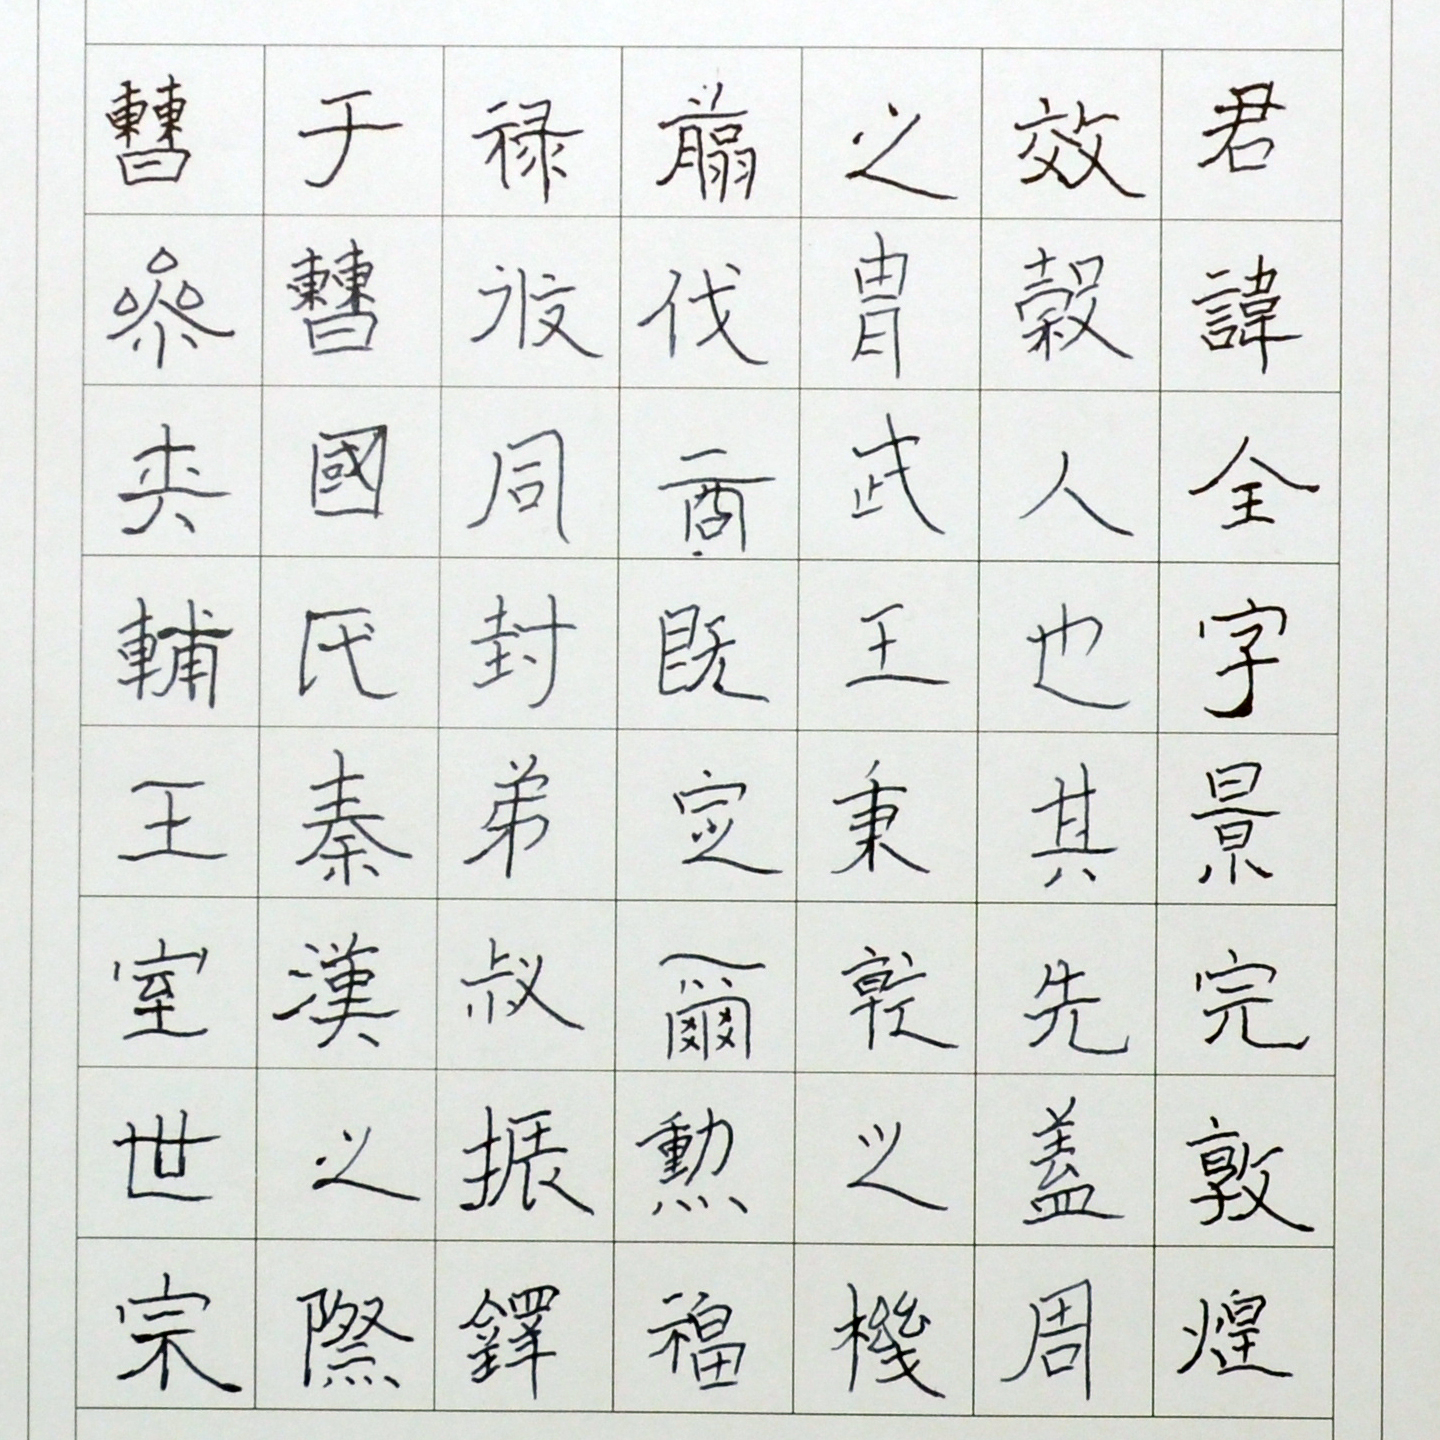 君諱全字景完敦煌
效穀人也其先蓋周
之胄武王秉乾之機
翦伐商既定爾勲福
祿攸同封弟叔振鐸
于曹國氏秦漢之際
曹參夾輔王室世宗